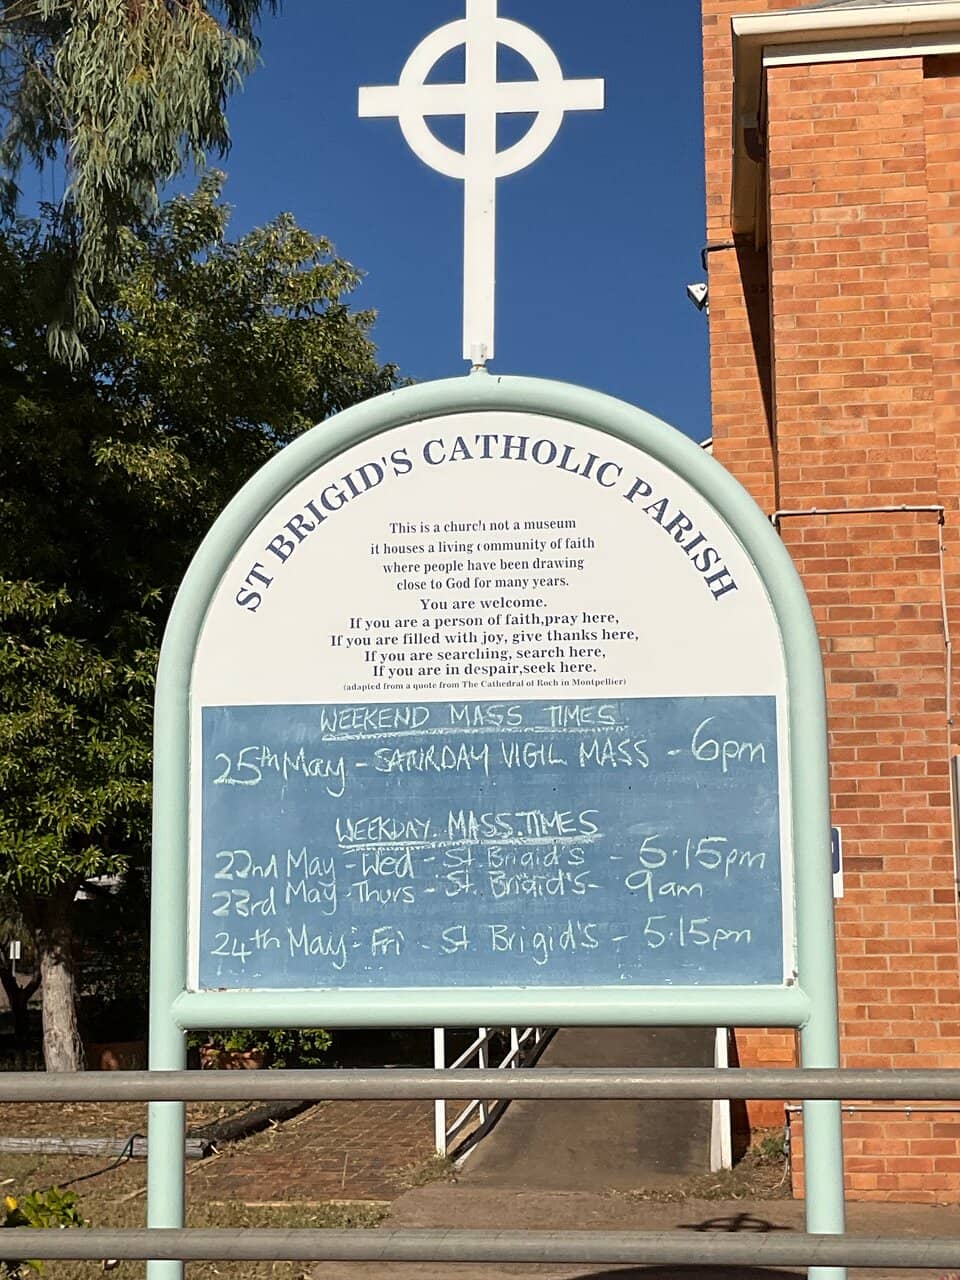 ST BRIGID'S CATHOLIC PARISH
This is a church not a museum
it houses a living community of faith
where people have been drawing
close to God for many years.
You are welcome.
If you are a person of faith,pray here,
If you are filled with joy, give thanks here,
If you are searching, search here,
If you are in despair,seek here.
(adapted from a quote from The Cathedral of Roch in Montpellier)
WEEKEND MASS TIMES
25th May - SATURDAY VIGIL MASS - 6pm
WEEKDAY MASS TIMES
22nd May - Wed - St. Brigid's - 5.15pm
23rd May - Thurs - St. Brigid's - 9am
24th May - Fri - St. Brigid's - 5.15pm